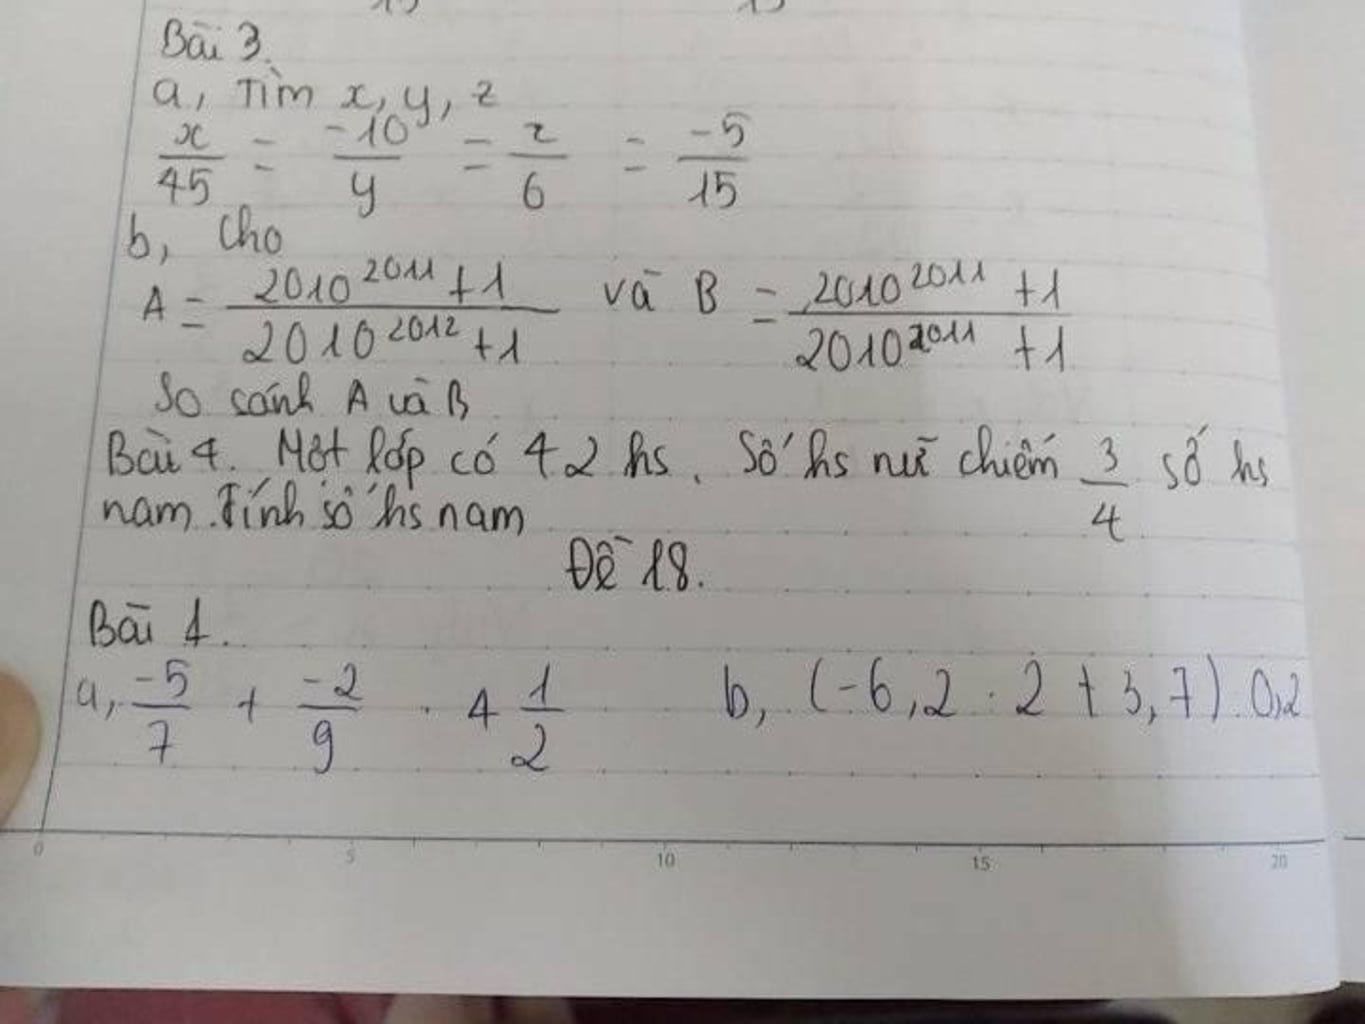 Bài 3.
a, Tìm x, y, z
x/45 = -10/y = z/6 = -5/15
b, Cho
A = (2010^2011 + 1)/(2010^2012 + 1) và B = (2010^2011 + 1)/(2010^2011 + 1)
So sánh A và B
Bài 4. Một lớp có 42 hs. Số hs nữ chiếm 3/4 số hs
nam. Tính số hs nam
Đề 18.
Bài 1.
a, -5/7 + -2/9 . 4 1/2 b, (-6,2 . 2 + 3,7) . 0,2
0 5 10 15 20